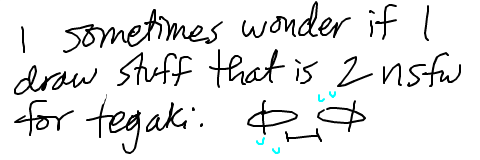 I sometimes wonder if I
draw stuff that is 2 nsfw
for tegaki.